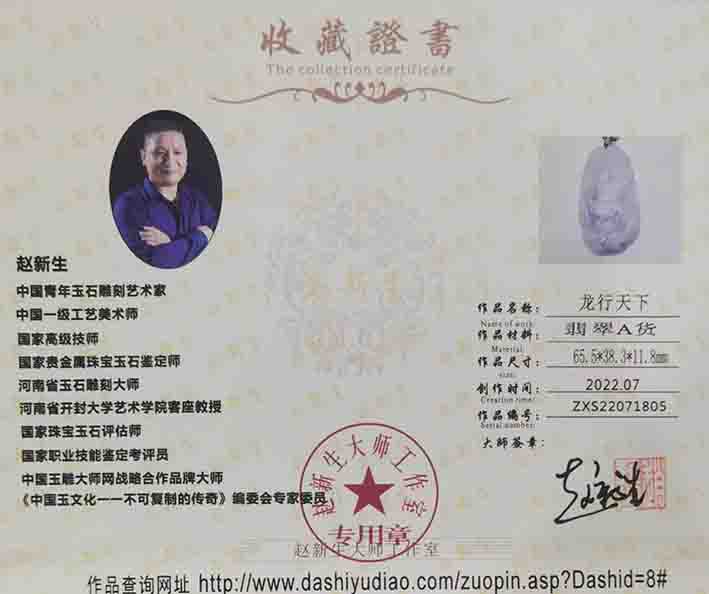 收藏證書
The collection certificate
赵新生
中国青年玉石雕刻艺术家
中国一级工艺美术师
国家高级技师
国家贵金属珠宝玉石鉴定师
河南省玉石雕刻大师
河南省开封大学艺术学院客座教授
国家珠宝玉石评估师
国家职业技能鉴定考评员
中国玉雕大师网战略合作品牌大师
《中国玉文化一一不可复制的传奇》编委会专家委员
作品名称： 龙行天下
Name of work:
作品材料： 翡翠A货
Material:
作品尺寸： 65.5*38.3*11.8mm
size:
创作时间： 2022.07
Creation time:
作品编号： ZXS22071805
Serial number:
大师签章：
赵新生
赵新生大师工作室
专用章
赵新生大师工作室
作品查询网址 http://www.dashiyudiao.com/zuopin.asp?Dashid=8#